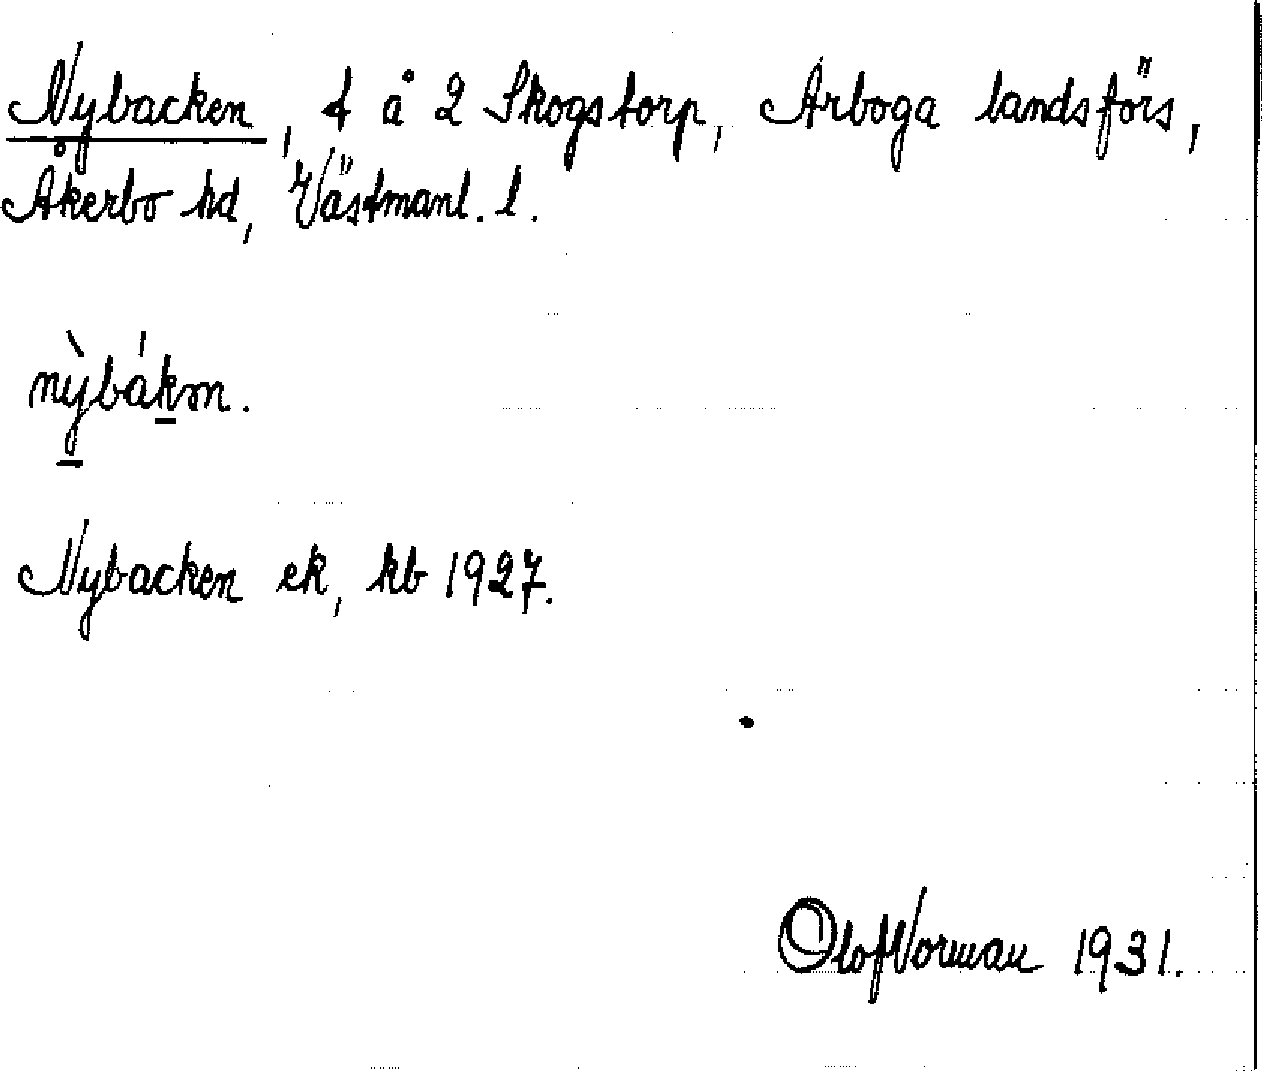 Nybacken, t å 2 Skogstorp, Arboga landsförs,
Åkerbo hd, Västmanl. l.
nỳbákm.
Nybacken ek, kb 1927.
Olof Norman 1931.